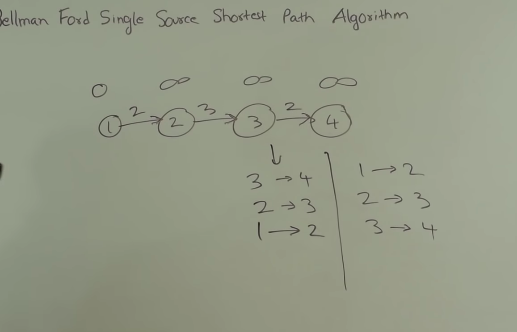 Bellman Ford Single Source Shortest Path Algorithm
0 ∞ ∞ ∞
2 3 2
1 2 3 4
3 → 4
2 → 3
1 → 2
1 → 2
2 → 3
3 → 4